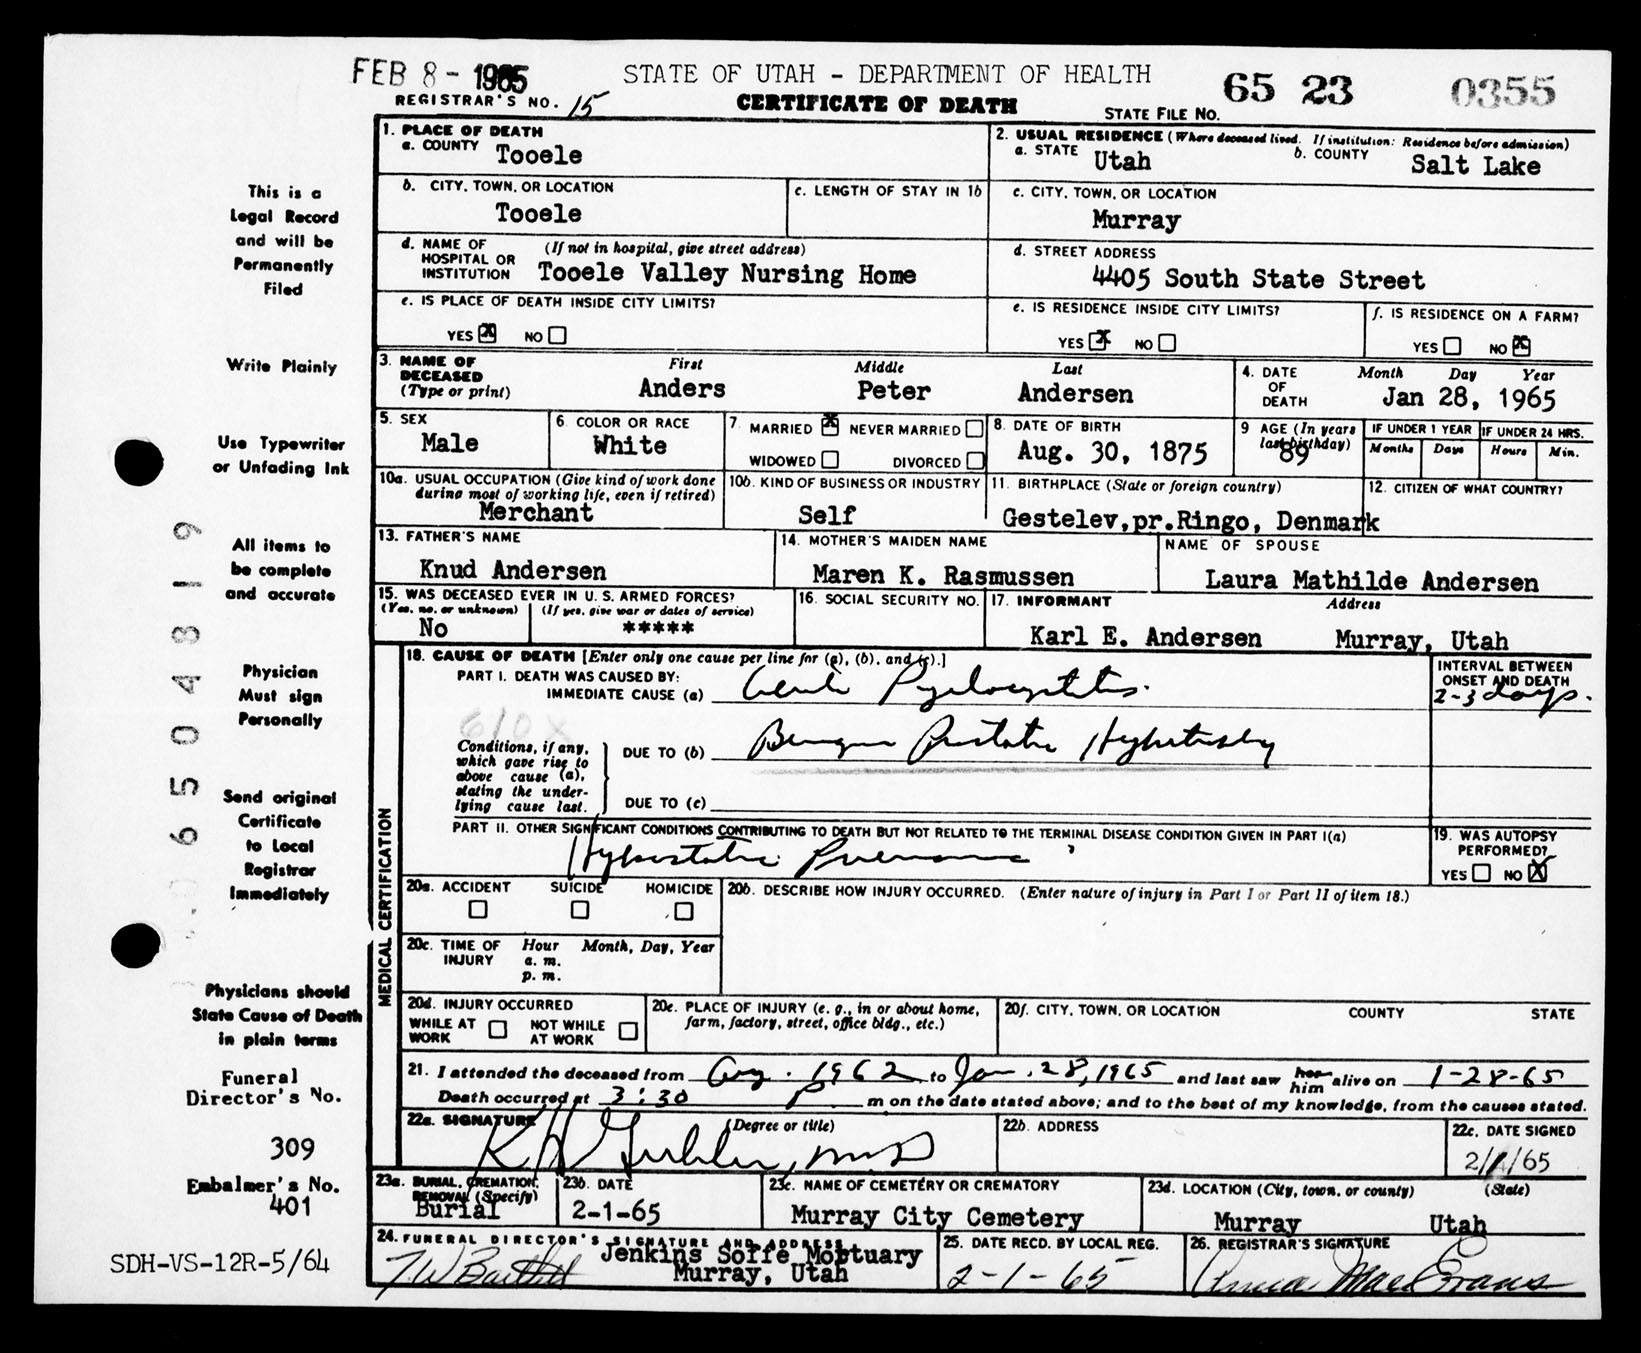 FEB 8 - 1965
STATE OF UTAH - DEPARTMENT OF HEALTH
65 23 0355
REGISTRAR'S NO. 15
CERTIFICATE OF DEATH
STATE FILE NO.
1. PLACE OF DEATH
a. COUNTY Tooele
2. USUAL RESIDENCE (Where deceased lived. If institution: Residence before admission)
a. STATE Utah b. COUNTY Salt Lake
b. CITY, TOWN, OR LOCATION
Tooele
c. LENGTH OF STAY IN 1b
c. CITY, TOWN, OR LOCATION
Murray
d. NAME OF HOSPITAL OR INSTITUTION (If not in hospital, give street address)
Tooele Valley Nursing Home
d. STREET ADDRESS
4405 South State Street
e. IS PLACE OF DEATH INSIDE CITY LIMITS?
YES X NO
e. IS RESIDENCE INSIDE CITY LIMITS?
YES X NO
f. IS RESIDENCE ON A FARM?
YES NO X
3. NAME OF DECEASED (Type or print)
First Middle Last
Anders Peter Andersen
4. DATE OF DEATH
Month Day Year
Jan 28, 1965
5. SEX
Male
6. COLOR OR RACE
White
7. MARRIED X NEVER MARRIED
WIDOWED DIVORCED
8. DATE OF BIRTH
Aug. 30, 1875
9 AGE (In years last birthday)
89
IF UNDER 1 YEAR
Months Days
IF UNDER 24 HRS.
Hours Min.
10a. USUAL OCCUPATION (Give kind of work done during most of working life, even if retired)
Merchant
10b. KIND OF BUSINESS OR INDUSTRY
Self
11. BIRTHPLACE (State or foreign country)
Gestelev,pr.Ringo, Denmark
12. CITIZEN OF WHAT COUNTRY?
13. FATHER'S NAME
Knud Andersen
14. MOTHER'S MAIDEN NAME
Maren K. Rasmussen
NAME OF SPOUSE
Laura Mathilde Andersen
15. WAS DECEASED EVER IN U. S. ARMED FORCES?
(Yes, no, or unknown) (If yes, give war or dates of service)
No *****
16. SOCIAL SECURITY NO.
17. INFORMANT Address
Karl E. Andersen Murray, Utah
MEDICAL CERTIFICATION
18. CAUSE OF DEATH [Enter only one cause per line for (a), (b), and (c).]
PART I. DEATH WAS CAUSED BY:
IMMEDIATE CAUSE (a) Acute Pyelocystitis.
INTERVAL BETWEEN ONSET AND DEATH
2-3 days.
610X
Conditions, if any, which gave rise to above cause (a), stating the underlying cause last.
DUE TO (b) Benign Prostatic Hypertrophy
DUE TO (c)
PART II. OTHER SIGNIFICANT CONDITIONS CONTRIBUTING TO DEATH BUT NOT RELATED TO THE TERMINAL DISEASE CONDITION GIVEN IN PART I(a)
Hypostatic Pneumonia
19. WAS AUTOPSY PERFORMED?
YES NO X
20a. ACCIDENT SUICIDE HOMICIDE
20b. DESCRIBE HOW INJURY OCCURRED. (Enter nature of injury in Part I or Part II of item 18.)
20c. TIME OF INJURY Hour Month, Day, Year
a. m.
p. m.
20d. INJURY OCCURRED
WHILE AT WORK NOT WHILE AT WORK
20e. PLACE OF INJURY (e. g., in or about home, farm, factory, street, office bldg., etc.)
20f. CITY, TOWN, OR LOCATION COUNTY STATE
21. I attended the deceased from Aug. 1962 to Jan. 28, 1965 and last saw her him alive on 1-28-65
Death occurred at 3:30 P m on the date stated above; and to the best of my knowledge, from the causes stated.
22a. SIGNATURE (Degree or title)
M.D.
22b. ADDRESS
22c. DATE SIGNED
2/1/65
23a. BURIAL, CREMATION, REMOVAL (Specify)
Burial
23b. DATE
2-1-65
23c. NAME OF CEMETERY OR CREMATORY
Murray City Cemetery
23d. LOCATION (City, town, or county) (State)
Murray Utah
24. FUNERAL DIRECTOR'S SIGNATURE AND ADDRESS
Jenkins Soffe Mortuary
Murray, Utah
25. DATE RECD. BY LOCAL REG.
2-1-65
26. REGISTRAR'S SIGNATURE
Mae Evans
This is a
Legal Record
and will be
Permanently
Filed
Write Plainly
Use Typewriter
or Unfading Ink
All items to
be complete
and accurate
Physician
Must sign
Personally
Send original
Certificate
to Local
Registrar
Immediately
Physicians should
State Cause of Death
in plain terms
Funeral
Director's No.
309
Embalmer's No.
401
SDH-VS-12R-5/64
6504819